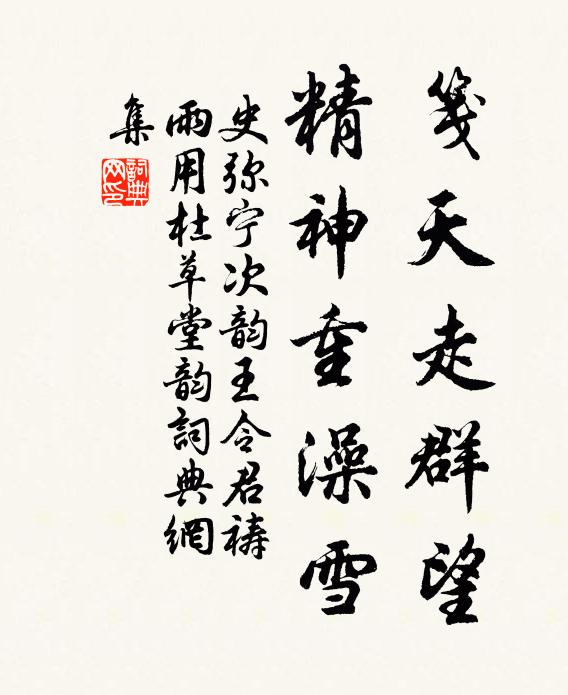 笺天走群望
精神重澡雪
史弥宁次韵王令君祷
雨用杜草堂韵詞典網
集
詞典網印